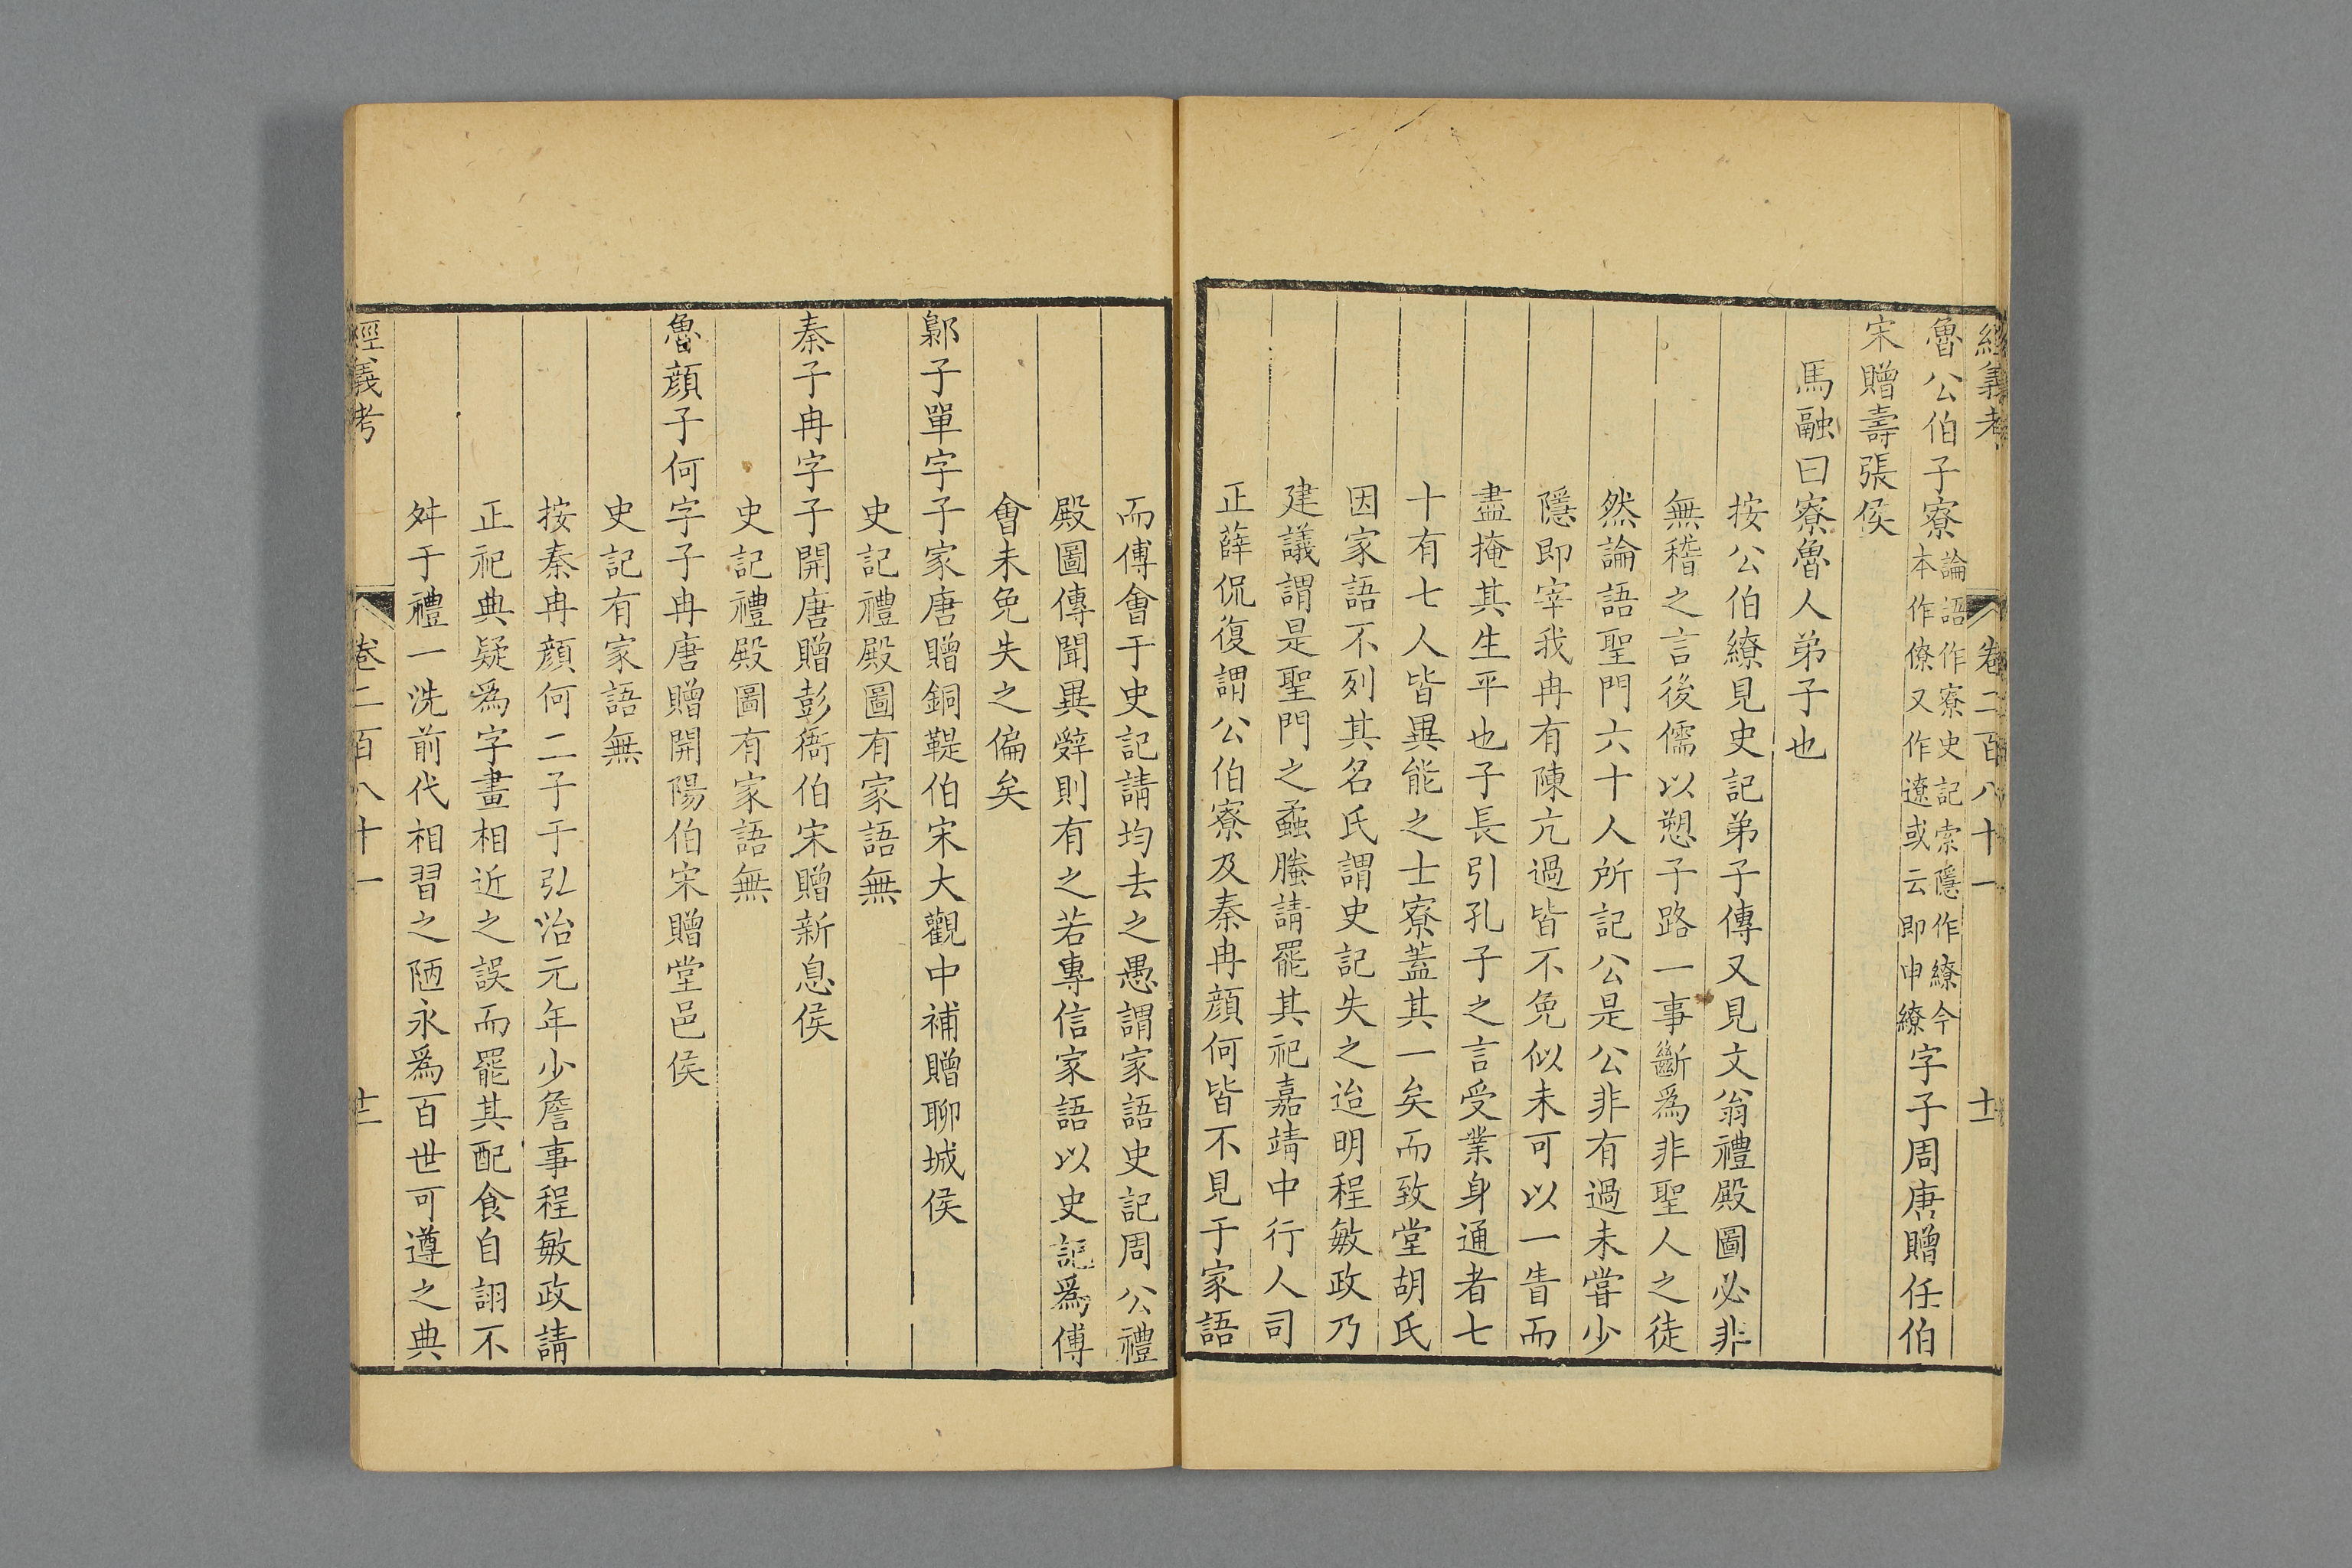 經義考 卷二百八十一 十一
魯公伯子寮論語作寮史記索隱作繚今本作僚又作遼或云即申繚字子周唐贈任伯
宋贈壽張侯
馬融曰寮魯人弟子也
按公伯繚見史記弟子傳又見文翁禮殿圖必非
無稽之言後儒以愬子路一事斷爲非聖人之徒
然論語聖門六十人所記公是公非有過未嘗少
隱即宰我冉有陳亢過皆不免似未可以一眚而
盡掩其生平也子長引孔子之言受業身通者七
十有七人皆異能之士寮蓋其一矣而致堂胡氏
因家語不列其名氏謂史記失之迨明程敏政乃
建議謂是聖門之蟊螣請罷其祀嘉靖中行人司
正薛侃復謂公伯寮及秦冉顔何皆不見于家語
而傅會于史記請均去之愚謂家語史記周公禮
殿圖傳聞異辭則有之若專信家語以史記爲傅
會未免失之偏矣
鄡子單字子家唐贈銅鞮伯宋大觀中補贈聊城侯
史記禮殿圖有家語無
秦子冉字子開唐贈彭衙伯宋贈新息侯
史記禮殿圖有家語無
魯顔子何字子冉唐贈開陽伯宋贈堂邑侯
史記有家語無
按秦冉顔何二子于弘治元年少詹事程敏政請
正祀典疑爲字畫相近之誤而罷其配食自詡不
舛于禮一洗前代相習之陋永爲百世可遵之典
經義考 卷二百八十一 十二